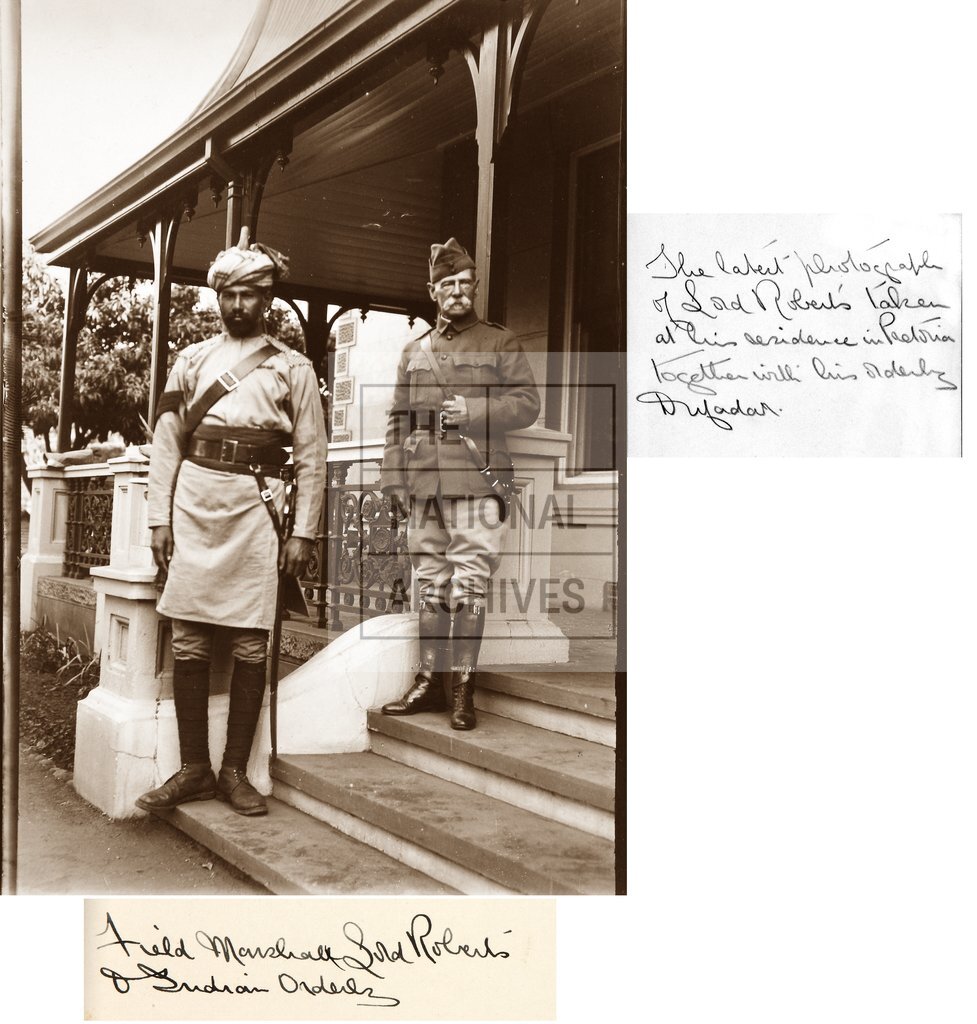 The latest photograph
of Lord Roberts taken
at his residence in Pretoria
together with his orderly
Dufadar.
THE
NATIONAL
ARCHIVES
Field Marshall Lord Roberts
& Indian Orderly